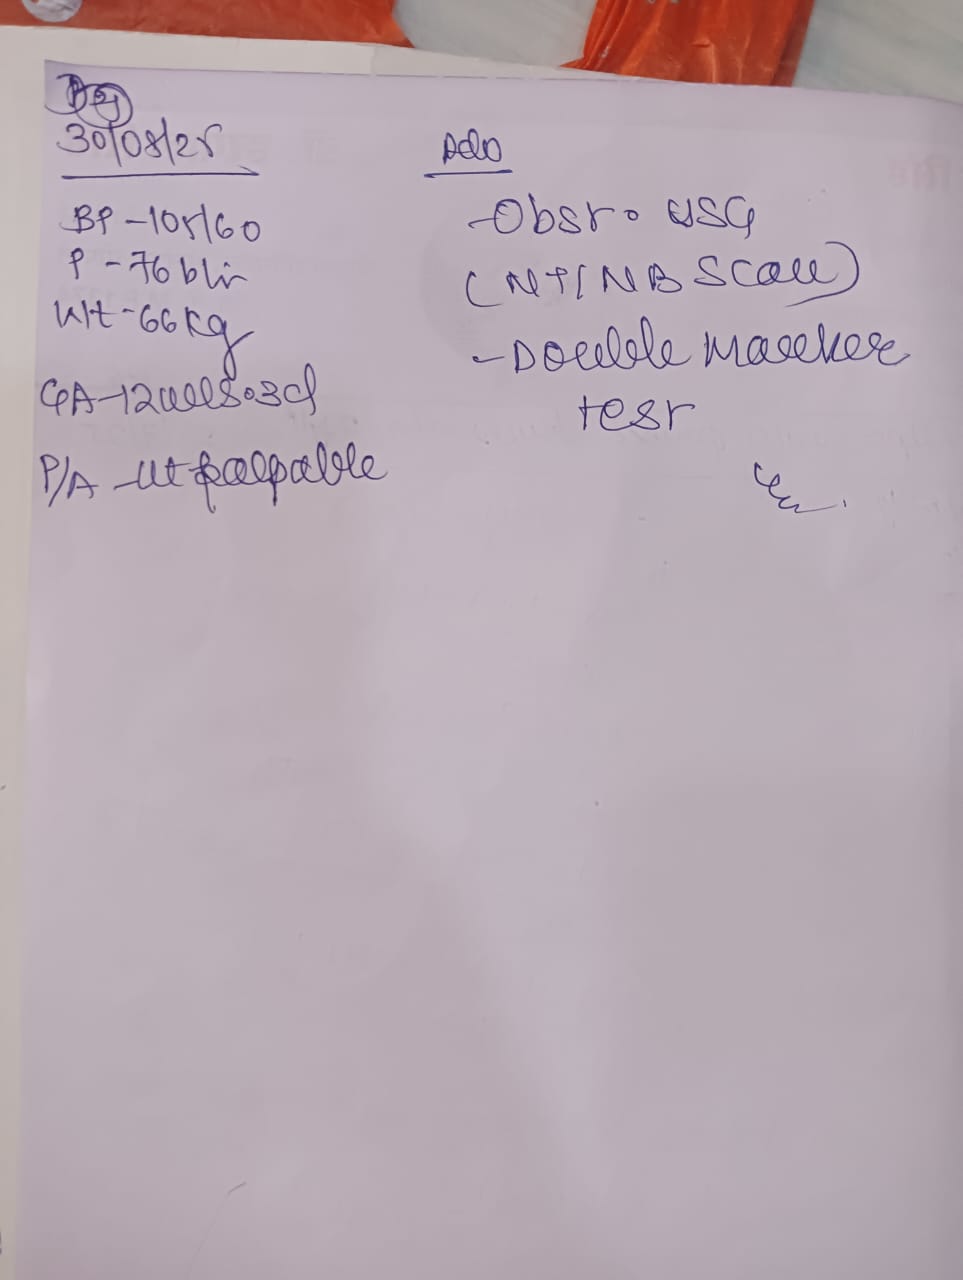 30/08/25
BP - 105/60
P - 76 b/m
Wt - 66 kg
GA - 12 wks 03d
P/A - Ut palpable
Adv
- Obst. USG
(NT/NB Scan)
- Double Marker
test